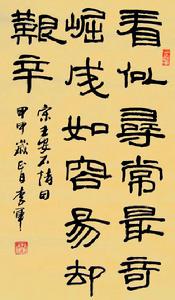 看似尋常最奇
崛成如容易却
艱辛
宋王安石詩句
甲申歲正月李軍